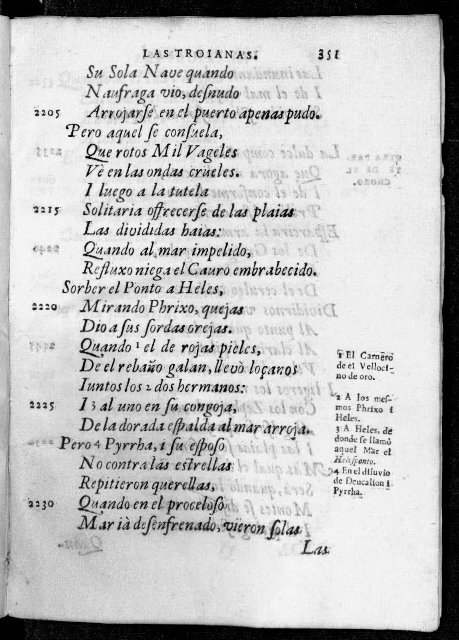 LAS TROIANAS. 351
Su Sola Nave quando
Naufraga vio, desnudo
2205 Arrojarse en el puerto apenas pudo.
Pero aquel se consuela,
Que rotos Mil Vageles
Vè en las ondas crueles.
I luego a la tutela
2215 Solitaria offrecerse de las plaias
Las divididas haias:
Quando al mar impelido,
Refluxo niega el Cauro embrabecido.
Sorber el Ponto a Heles,
2220 Mirando Phrixo, quejas
Dio a sus sordas orejas.
Quando 1 el de rojas pieles,
De el rebaño galan, llevò loçanos
Iuntos los 2 dos hermanos:
2225 I 3 al uno en su congoja,
De la dorada espalda al mar arroja.
Pero 4 Pyrrha, i su esposo
No contra las estrellas
Repitieron querellas,
2230 Quando en el proceloso,
Mar ià desenfrenado, vieron solas
Las
1 El Carnero
de el Velloci-
no de oro.
2 A los mes-
mos Phrixo i
Heles.
3 A Heles, de
donde se llamò
aquel Mar el
Helesponto.
4 En el diluvio
de Deucalion i
Pyrrha.